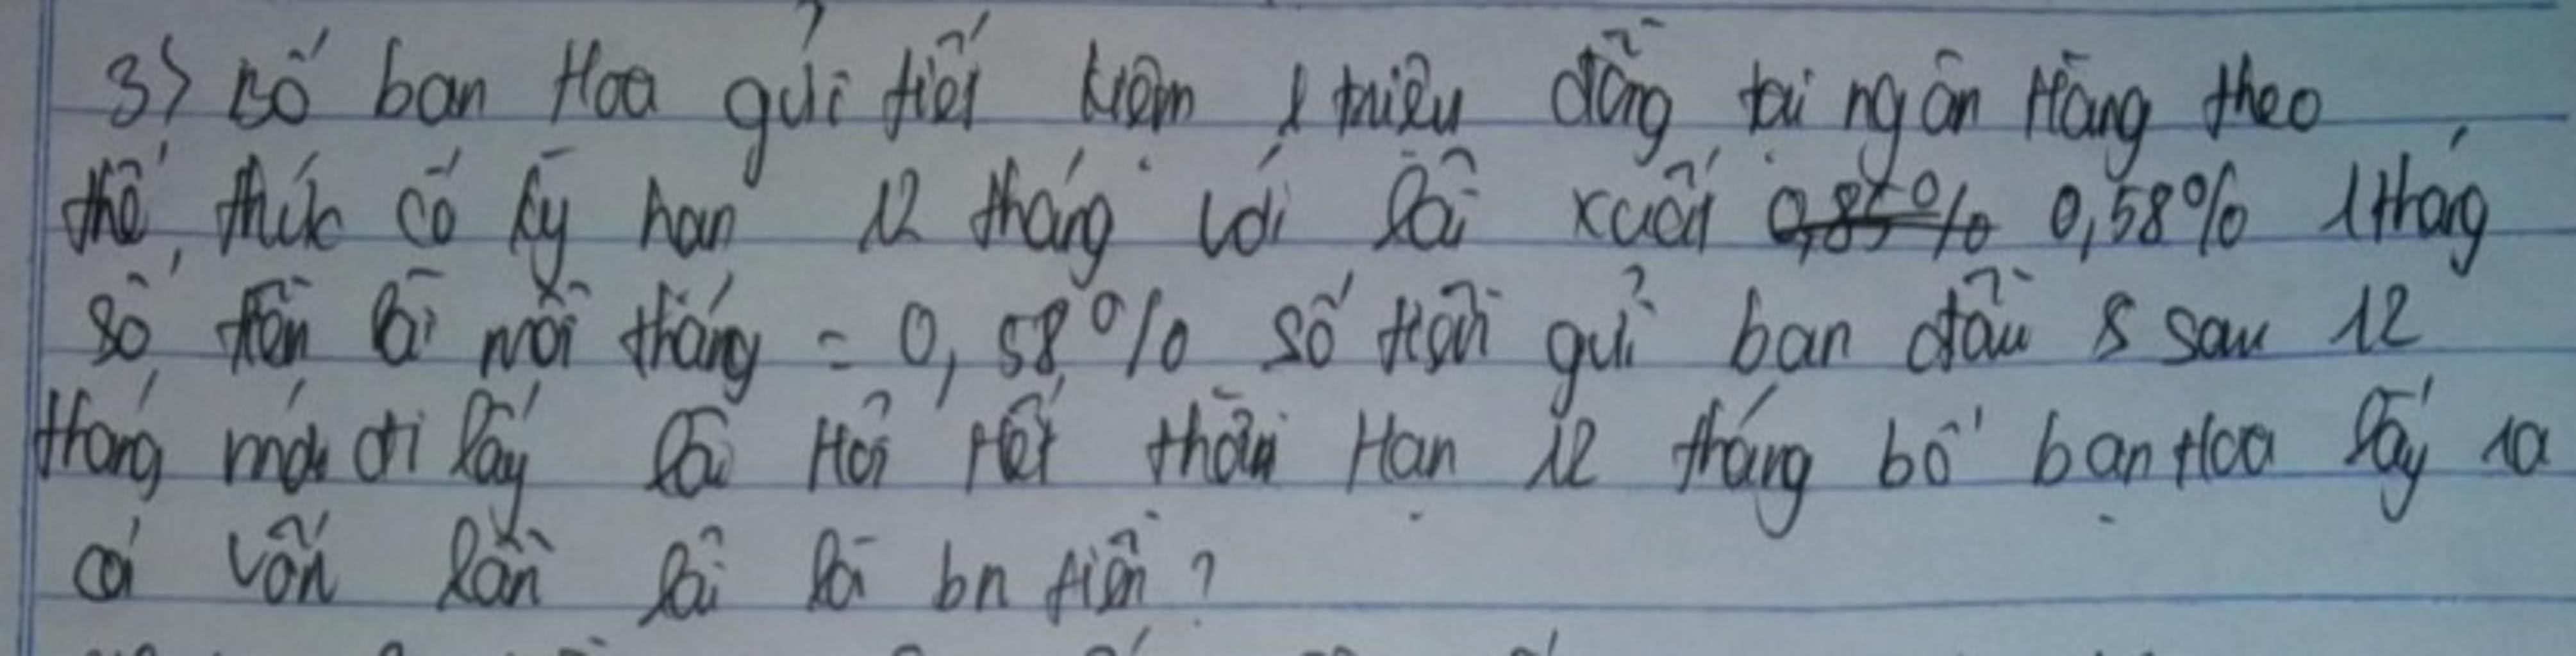 3) Bố bạn Hoa gửi tiết kiệm 1 triệu đồng tại ngân Hàng theo
thể thức có kỳ hạn 12 tháng với lãi xuất 0,58% 1 tháng
số tiền lãi mỗi tháng = 0,58% số tiền gửi ban đầu & sau 12
tháng mới đi lấy lãi Hỏi Hết thời Hạn 12 tháng bố bạn Hoa lấy ra
cả vốn lẫn lãi là bn tiền?